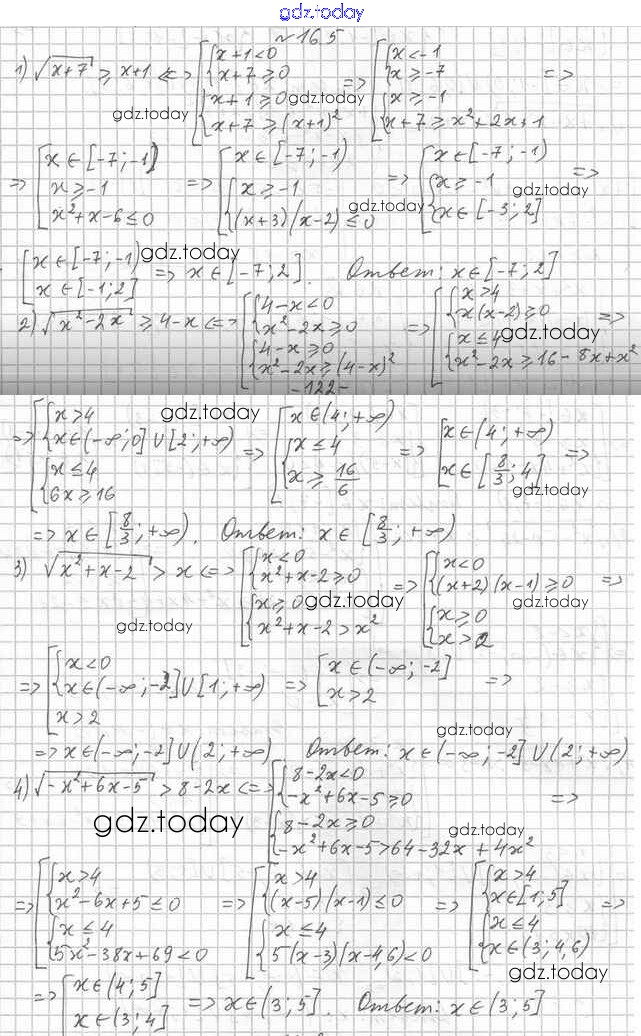 gdz.today
№16.5
1) √(x+7) ≥ x+1 <=> [{x+1<0 {x+7≥0 {x+1≥0 {x+7≥(x+1)² => [{x<-1 {x≥-7 {x≥-1 {x+7≥x²+2x+1 =>
gdz.today gdz.today
=> [x∈[-7;-1) {x≥-1 {x²+x-6≤0 => [x∈[-7;-1) {x≥-1 {(x+3)(x-2)≤0 => [x∈[-7;-1) {x≥-1 {x∈[-3;2] =>
gdz.today gdz.today
[x∈[-7;-1) x∈[-1;2] => x∈[-7;2]. Ответ: x∈[-7;2]
gdz.today
2) √(x²-2x) ≥ 4-x <=> [{4-x<0 {x²-2x≥0 {4-x≥0 {x²-2x≥(4-x)² => [{x>4 {x(x-2)≥0 {x≤4 {x²-2x≥16-8x+x² =>
gdz.today
-122-
gdz.today
=> [{x>4 {x∈(-∞;0]∪[2;+∞) {x≤4 {6x≥16 => [x∈(4;+∞) {x≤4 {x≥16/6 => [x∈(4;+∞) x∈[8/3;4] =>
gdz.today
=> x∈[8/3;+∞). Ответ: x∈[8/3;+∞)
3) √(x²+x-2) > x <=> [{x<0 {x²+x-2≥0 {x≥0 {x²+x-2>x² => [{x<0 {(x+2)(x-1)≥0 {x≥0 {x>2 =>
gdz.today gdz.today
gdz.today
=> [{x<0 {x∈(-∞;-2]∪[1;+∞) x>2 => [x∈(-∞;-2] x>2 =>
gdz.today
=> x∈(-∞;-2]∪(2;+∞) Ответ: x∈(-∞;-2]∪(2;+∞)
4) √(-x²+6x-5) > 8-2x <=> [{8-2x<0 {-x²+6x-5≥0 {8-2x≥0 {-x²+6x-5>64-32x+4x² =>
gdz.today gdz.today
=> [{x>4 {x²-6x+5≤0 {x≤4 {5x²-38x+69<0 => [{x>4 {(x-5)(x-1)≤0 {x≤4 {5(x-3)(x-4,6)<0 => [{x>4 {x∈[1;5] {x≤4 {x∈(3;4,6) =>
gdz.today
=> [x∈(4;5] x∈(3;4] => x∈(3;5]. Ответ: x∈(3;5]